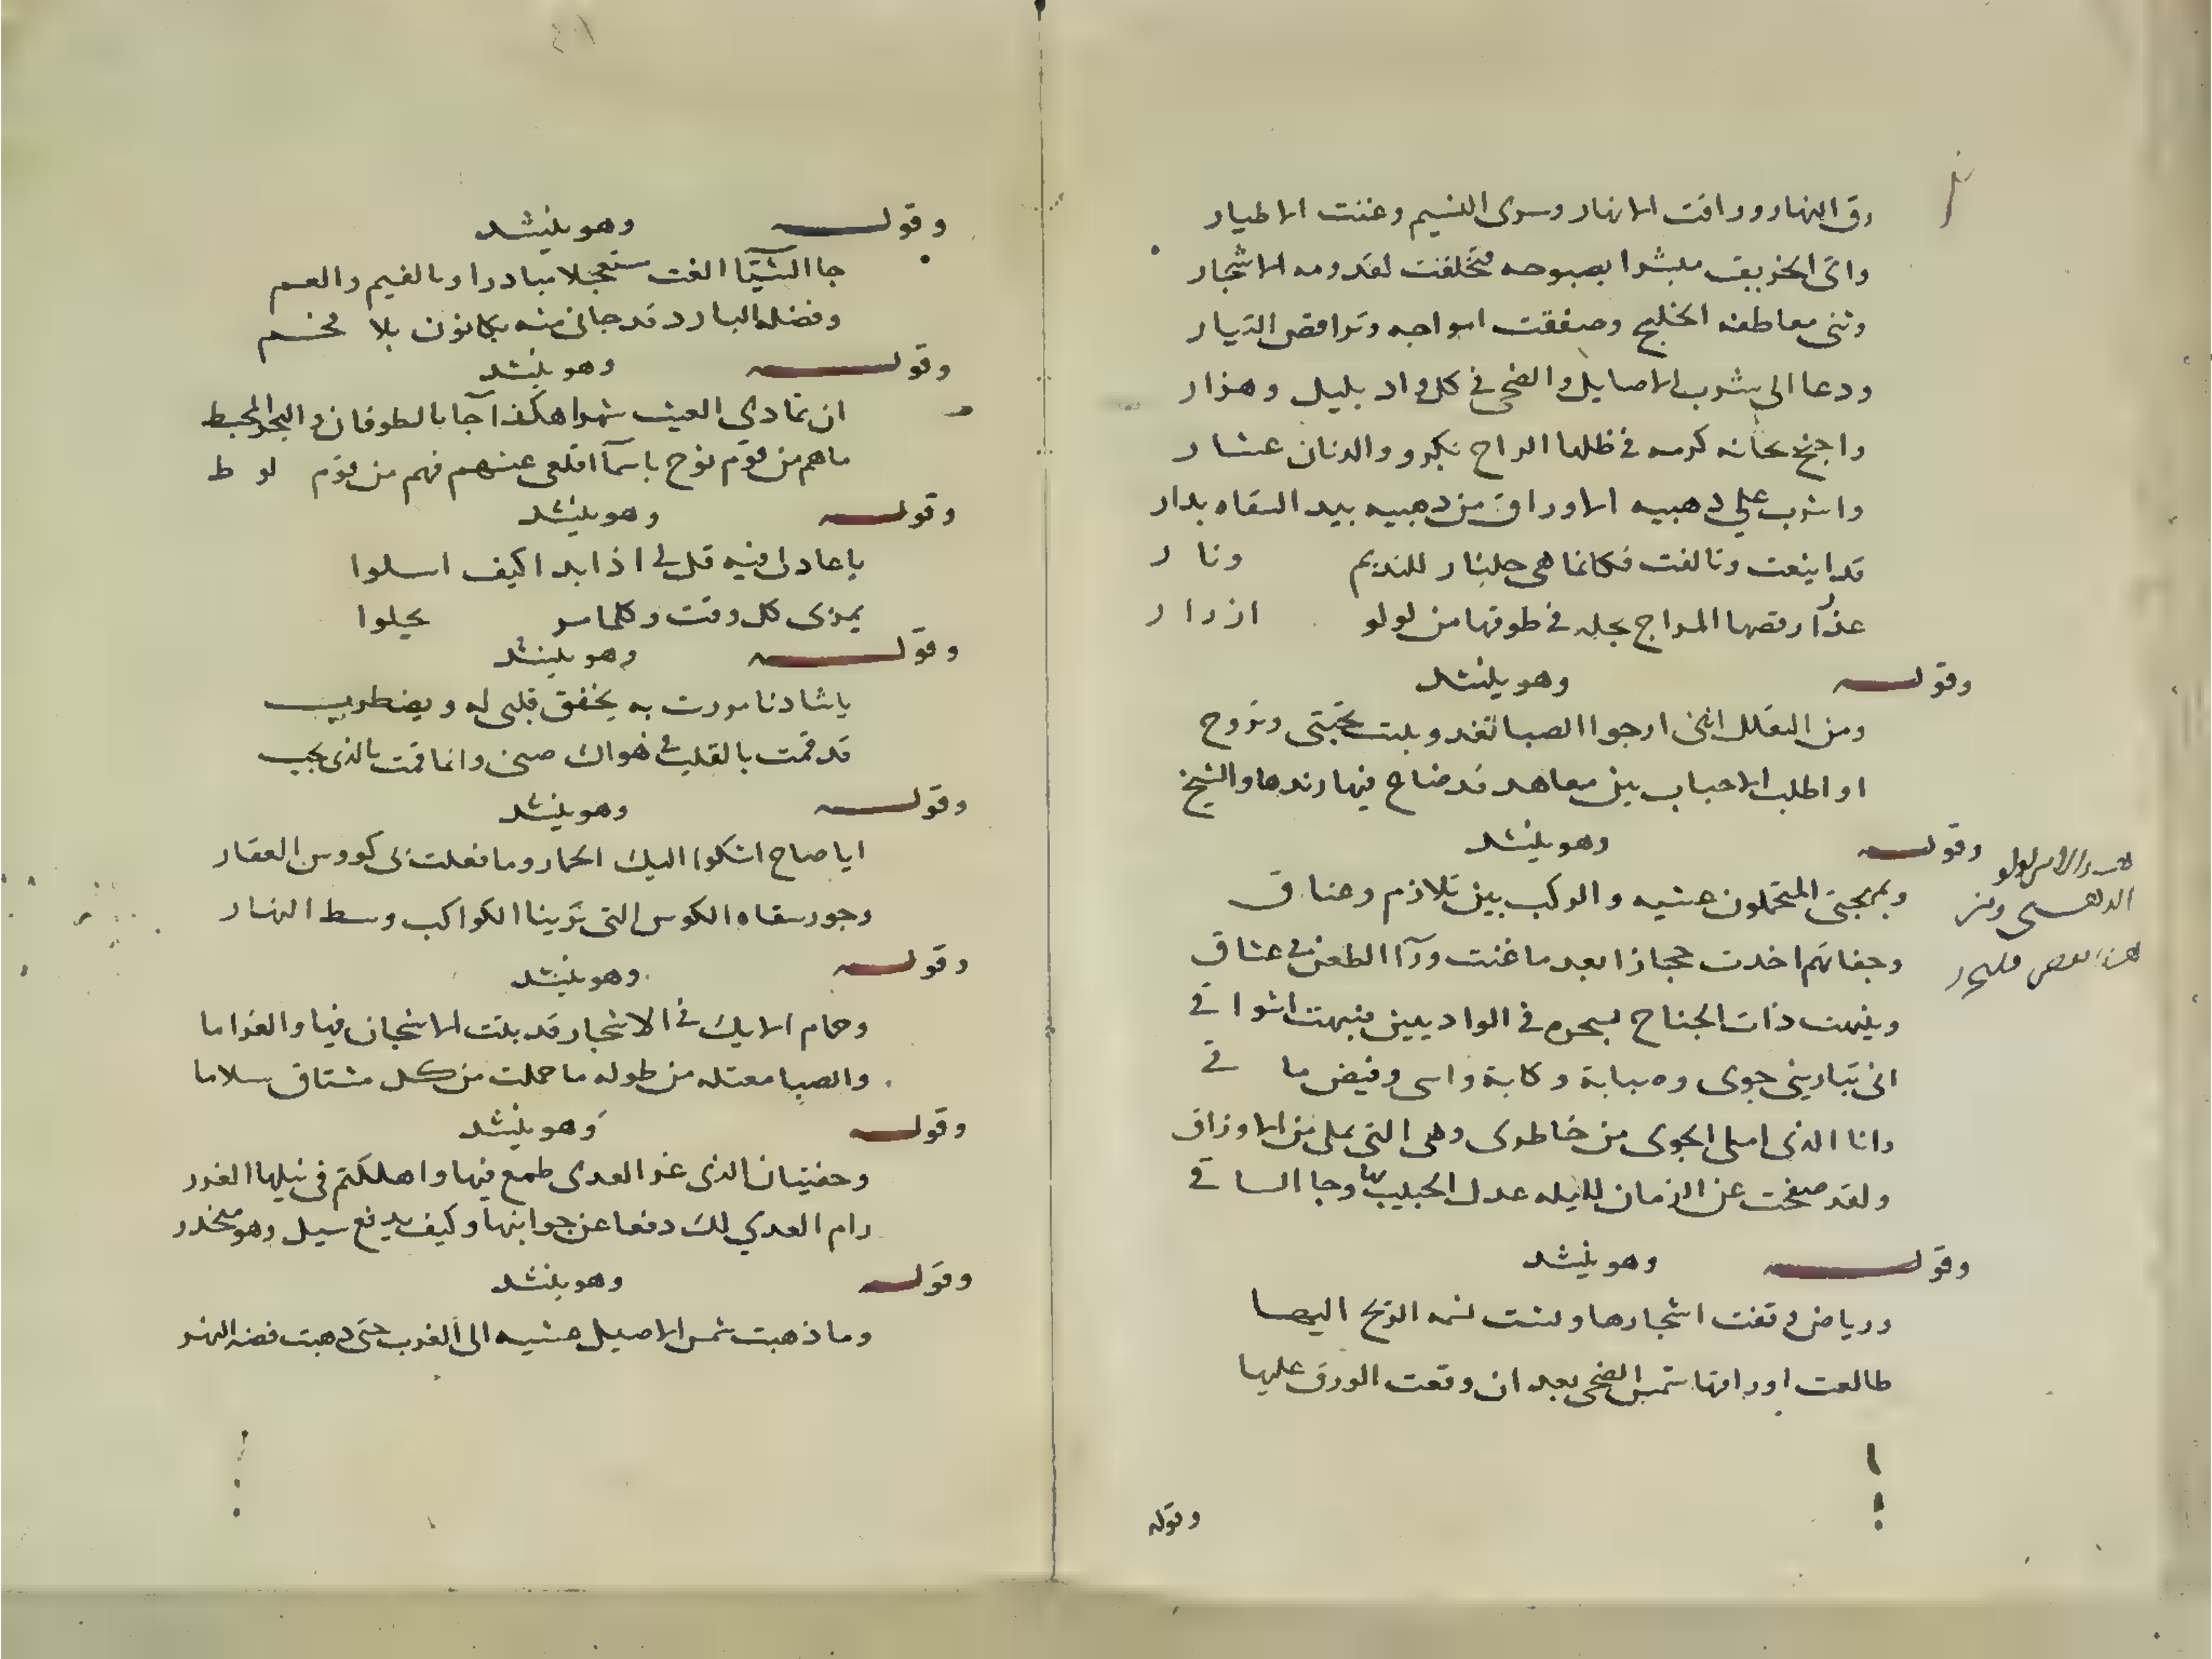 رق النهار وراقت الانهار وسرى النسيم وغنت الاطيار
واتى الخريف مبشرا بصبوحه فتخلفت لقدومه الاشجار
وثنى معاطفه الخليج وصفقت امواجه وتراقص التيار
ودعا الى شرب الاصايل والضحى في كل واد بلبل وهزار
واجنح بحانه كرمه في ظلها الراح بكر و والدنان عشار
واشرب على دهبيه الاوراق من دهبيه بيد السقاه بدار
قد اينعت وتالفت فكانما هي جلنار للنديم ونار
عذرآ رقصها المزاج بجله في طوقها من لولو ازرار
وقوله وهو ينشد
ومن التعلل انني ارجوا الصبا تغدو بليت بحبتي وتروح
او اطلب الاحباب بين معاهد قد ضاح فيها رندها والشيح
وقوله وهو ينشد
وبمهجتي المتحملون عشيه والركب بين تلازم وعناق
وحداتهم اخدت حجازا بعد ما غنت ورآ الظعن في عشاق
وينبهت ذات الجناح بسحره في الواديين فنبهت اشواقي
اني تباريني جوى وصبابة وكابة واسى وفيض ماقي
وانا الذي املى الجوى من خاطري وهي التي تملى من الاوراق
ولقد صفحت عن الزمان لليله عدل الحبيب بها وجا الساقي
وقوله وهو ينشد
ورياض وقفت اشجارها ومشت نسمه الريح اليها
طالعت اوراقها شمس الضحى بعد ان وقعت الورق عليها
وقوله
وقوله وهو ينشد
جا الشتيآ الغث مستعجلا مبادرا وبالغيم والعم
وفضله البارد قد جاني منه بكانون بلا فحم
وقوله وهو ينشد
ان تمادى الغيث شهرا هكذا جآ بالطوفان والبحر المحيط
ماهم من قوم نوح ياسمآ اقلعي عنهم فهم من قوم لوط
وقوله وهو ينشد
ياعادلى فيه قل لي اذا بدا كيف اسلوا
يمر بى كل وقت وكلما مر يحلوا
وقوله وهو ينشد
ياشادنا مررت به يخفق قلبى له ويضطرب
قد قمت بالقلب في هواك ضنى وانما قمت بالذى يجب
وقوله وهو ينشد
ايا صاح اشكوا اليك الخمار وما فعلت بى كووس العقار
وجور سقاه الكوس التى ترينا الكواكب وسط النهار
وقوله وهو ينشد
وحمام الايك في الاشجار قد بلت الاشجان فيها والغراما
والصبا معتله من طوله ما حملت من كل مشتاق سلاما
وقوله وهو ينشد
الذى غر العدى طمع فيها واهلكتم في نيلها الغرر
رام العدي لك دفعا عن جوانبها وكيف يدفع سيل وهو منحدر
وقوله وهو ينشد
وما ذهبت شمس الاصيل عشيه الى الغرب حتى دهبت فضه النهر